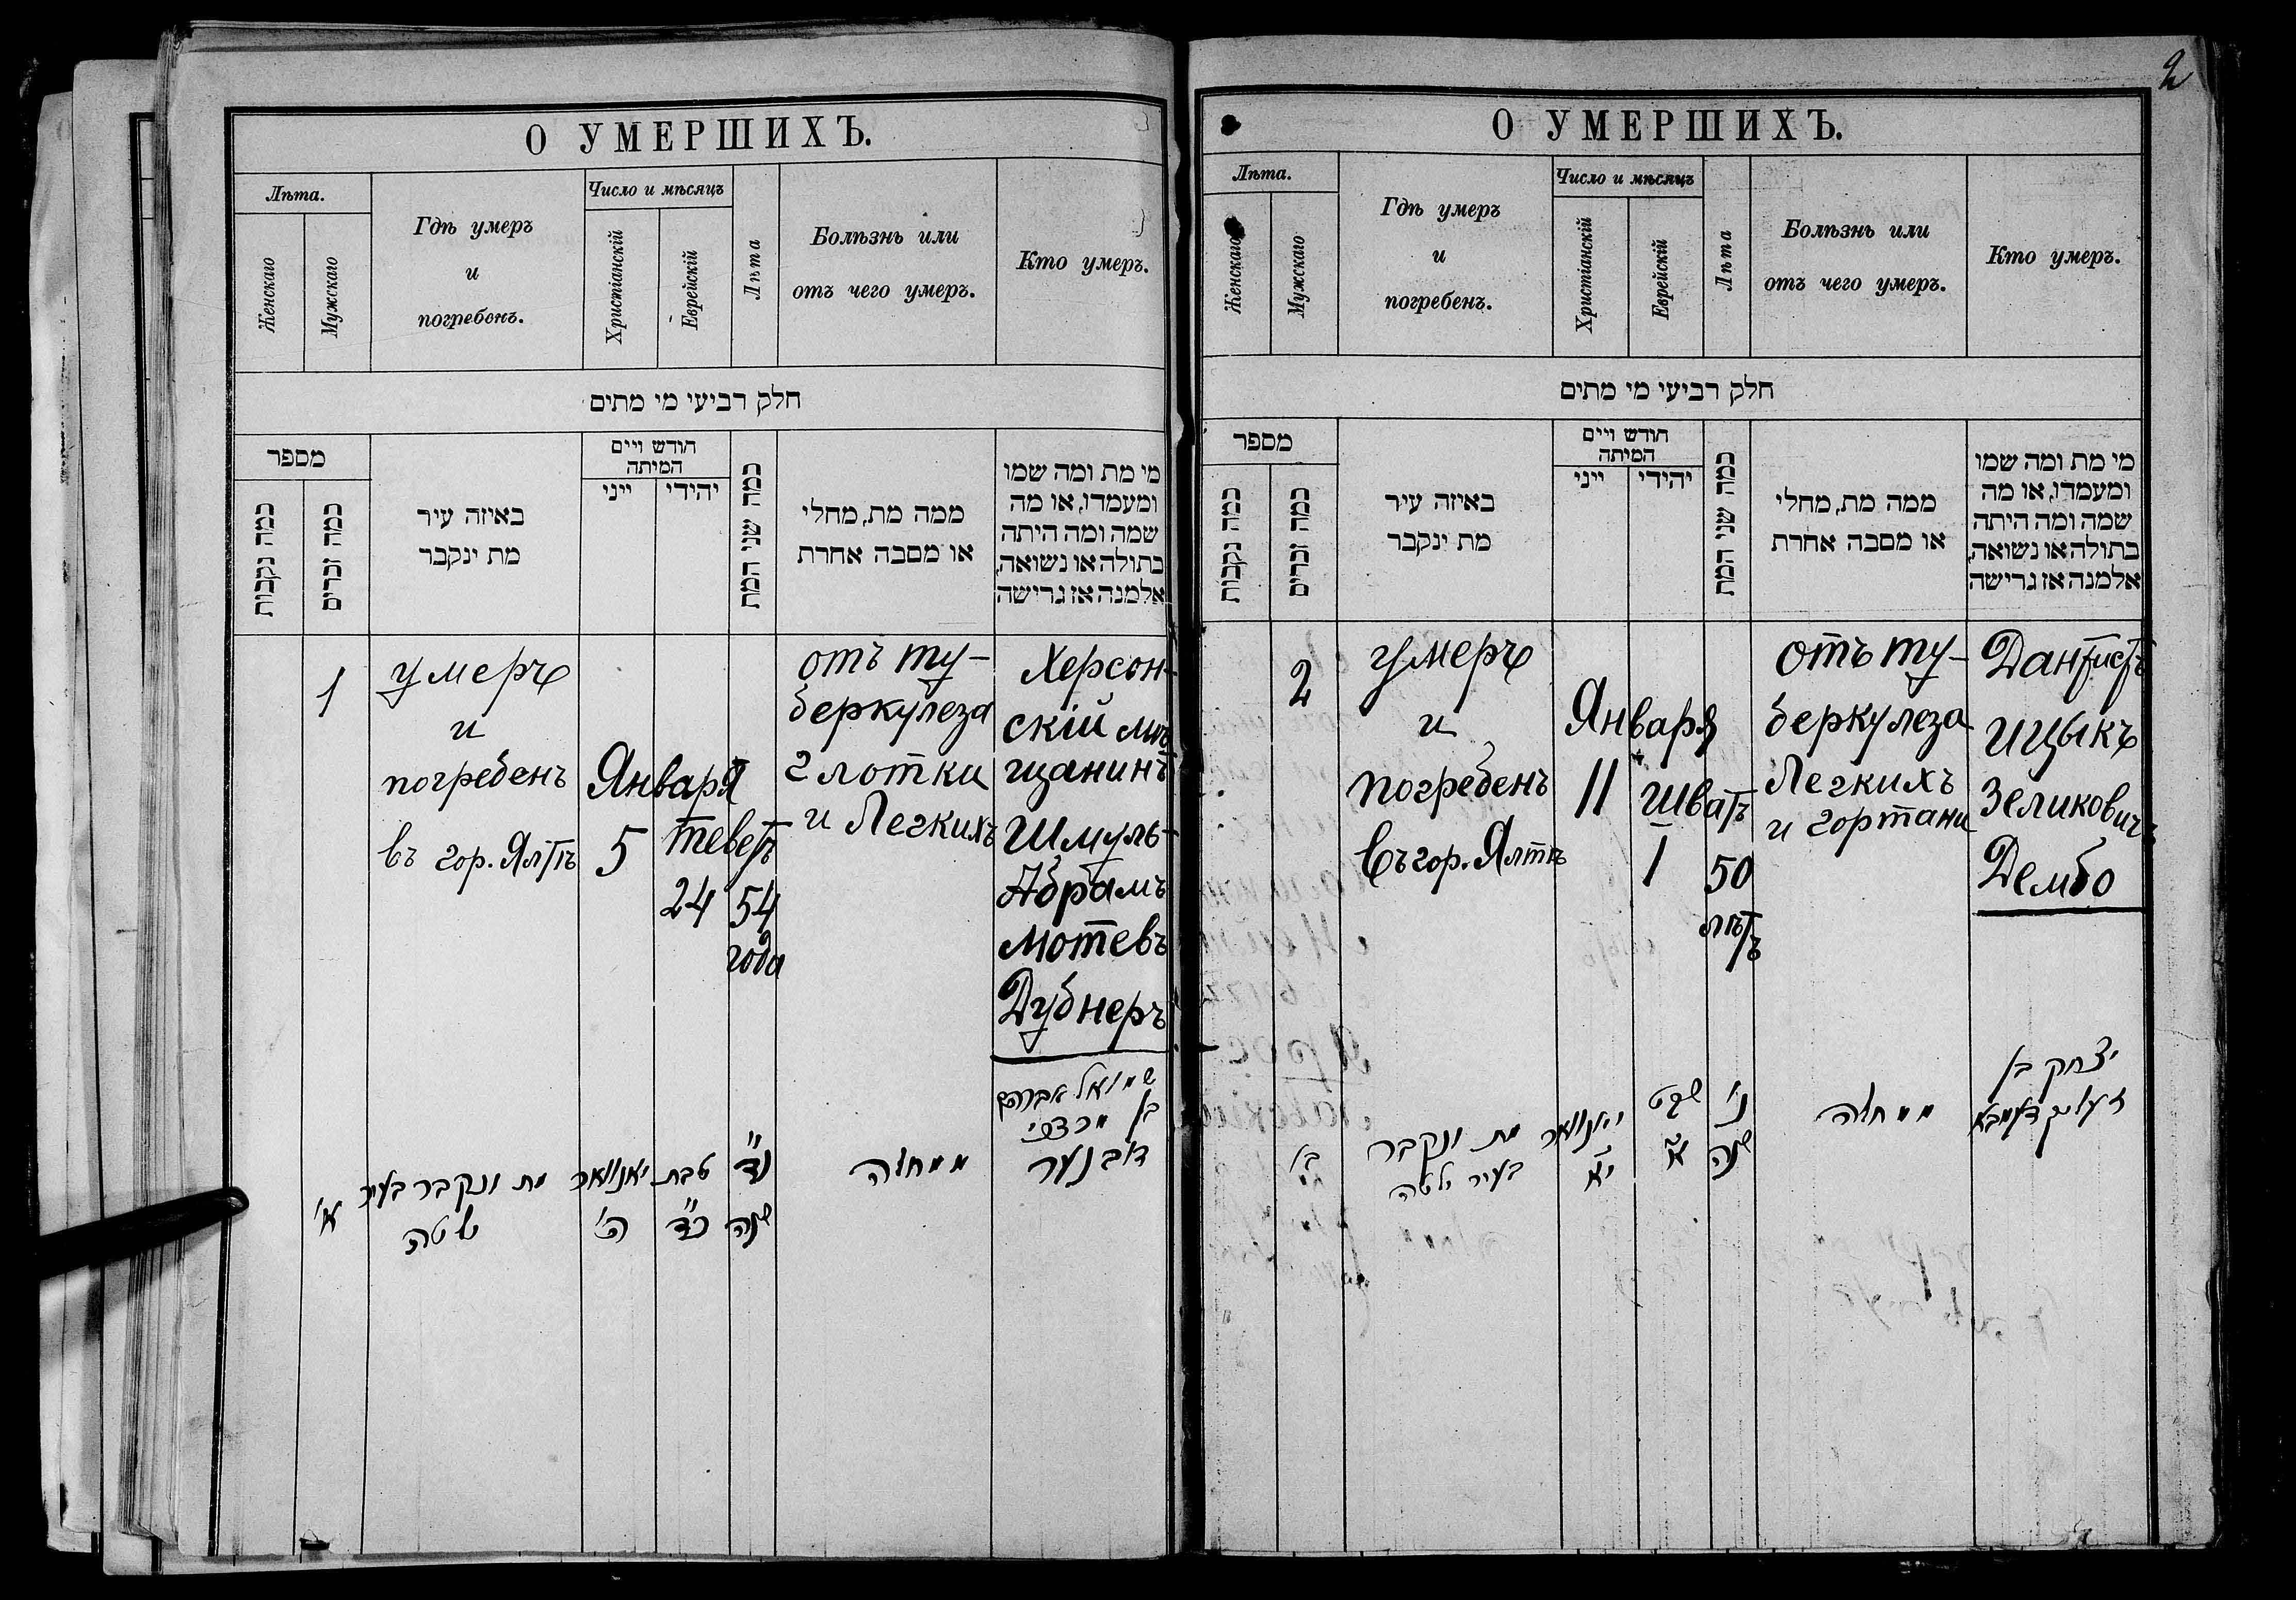 О УМЕРШИХЪ.
Лѣта.
Женскаго
Мужскаго
Гдѣ умеръ
и
погребенъ.
Число и мѣсяцъ
Христіанскій
Еврейскій
Лѣта
Болѣзнь или
отъ чего умеръ.
Кто умеръ.
חלק רביעי מי מתים
מספר
כמה נקבות
כמה זכרים
באיזה עיר
מת ינקבר
חודש ויים
המיתה
ייני
יהידי
כמה שני המת
ממה מת, מחלי
או מסבה אחרת
מי מת ומה שמו
ומעמדו, או מה
שמה ומה היתה
בתולה או נשואה,
אלמנה אז גרישה
1
умеръ
и
погребенъ
въ гор. Ялтѣ
Января
5
теветъ
24
54
года
отъ ту-
беркулеза
глотки
и Легкихъ
Херсон-
скій мѣ
щанинъ
Шмуль-
Абрамъ
Мотевъ
Дубнеръ
א'
מת ונקבר בעיר
יאלטה
יאנואר
ה'
טבת
כ"ד
נ"ד
שנה
ממחלה
שמואל אברהם
בן מרדכי
דובנער
2
О УМЕРШИХЪ.
Лѣта.
Женскаго
Мужскаго
Гдѣ умеръ
и
погребенъ.
Число и мѣсяцъ
Христіанскій
Еврейскій
Лѣта
Болѣзнь или
отъ чего умеръ.
Кто умеръ.
חלק רביעי מי מתים
מספר
כמה נקבות
כמה זכרים
באיזה עיר
מת ינקבר
חודש ויים
המיתה
ייני
יהידי
כמה שני המת
ממה מת, מחלי
או מסבה אחרת
מי מת ומה שמו
ומעמדו, או מה
שמה ומה היתה
בתולה או נשואה,
אלמנה אז גרישה
2
умеръ
и
погребенъ
въ гор. Ялтѣ
Января
11
Шватъ
1
50
лѣтъ
отъ ту-
беркулеза
Легкихъ
и гортани
Дантистъ
Ицыкъ
Зеликовичъ
Дембо
ב'
מת ונקבר
בעיר ילטה
יאנוואר
י"א
שבט
א'
נ'
שנה
ממחלה
יצחק בן
זעליק דעמבא